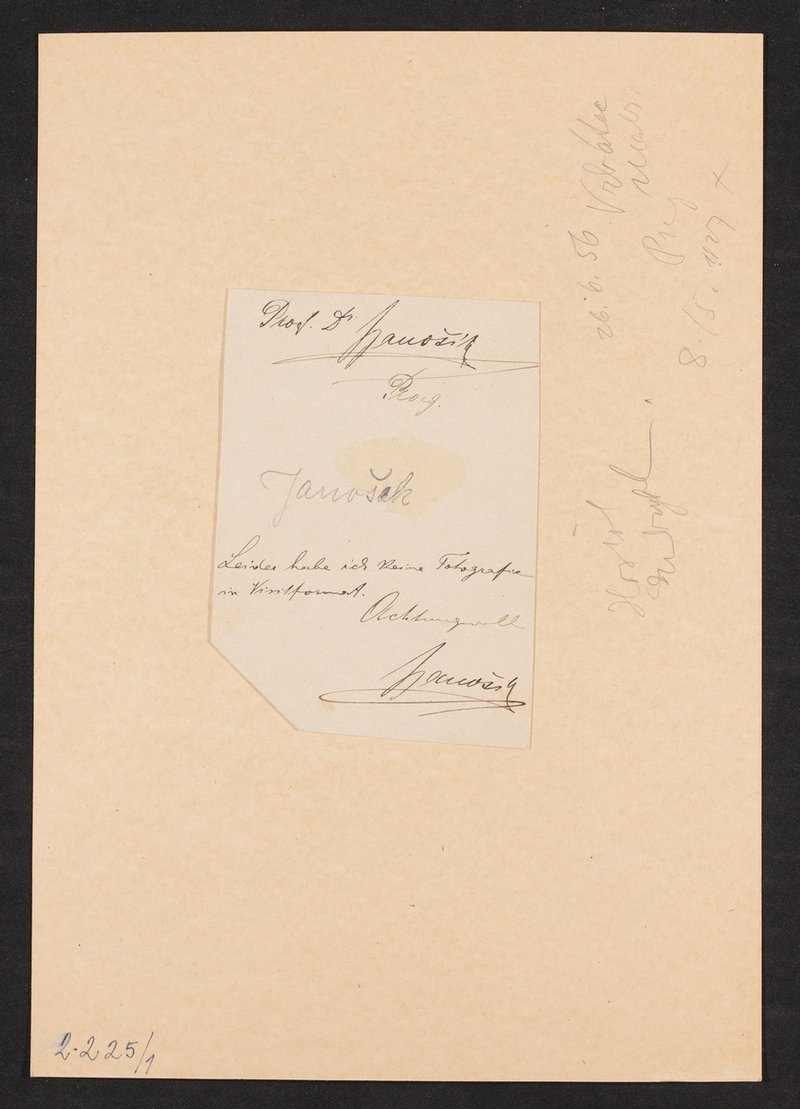 Prof. Dr Janošík
Prag.
Janošek
Leider habe ich keine Fotografie
in Visitformat.
Achtungsvoll
Janošík
26. 6. 56
Prag
8. /5. 1927 +
2-225/1